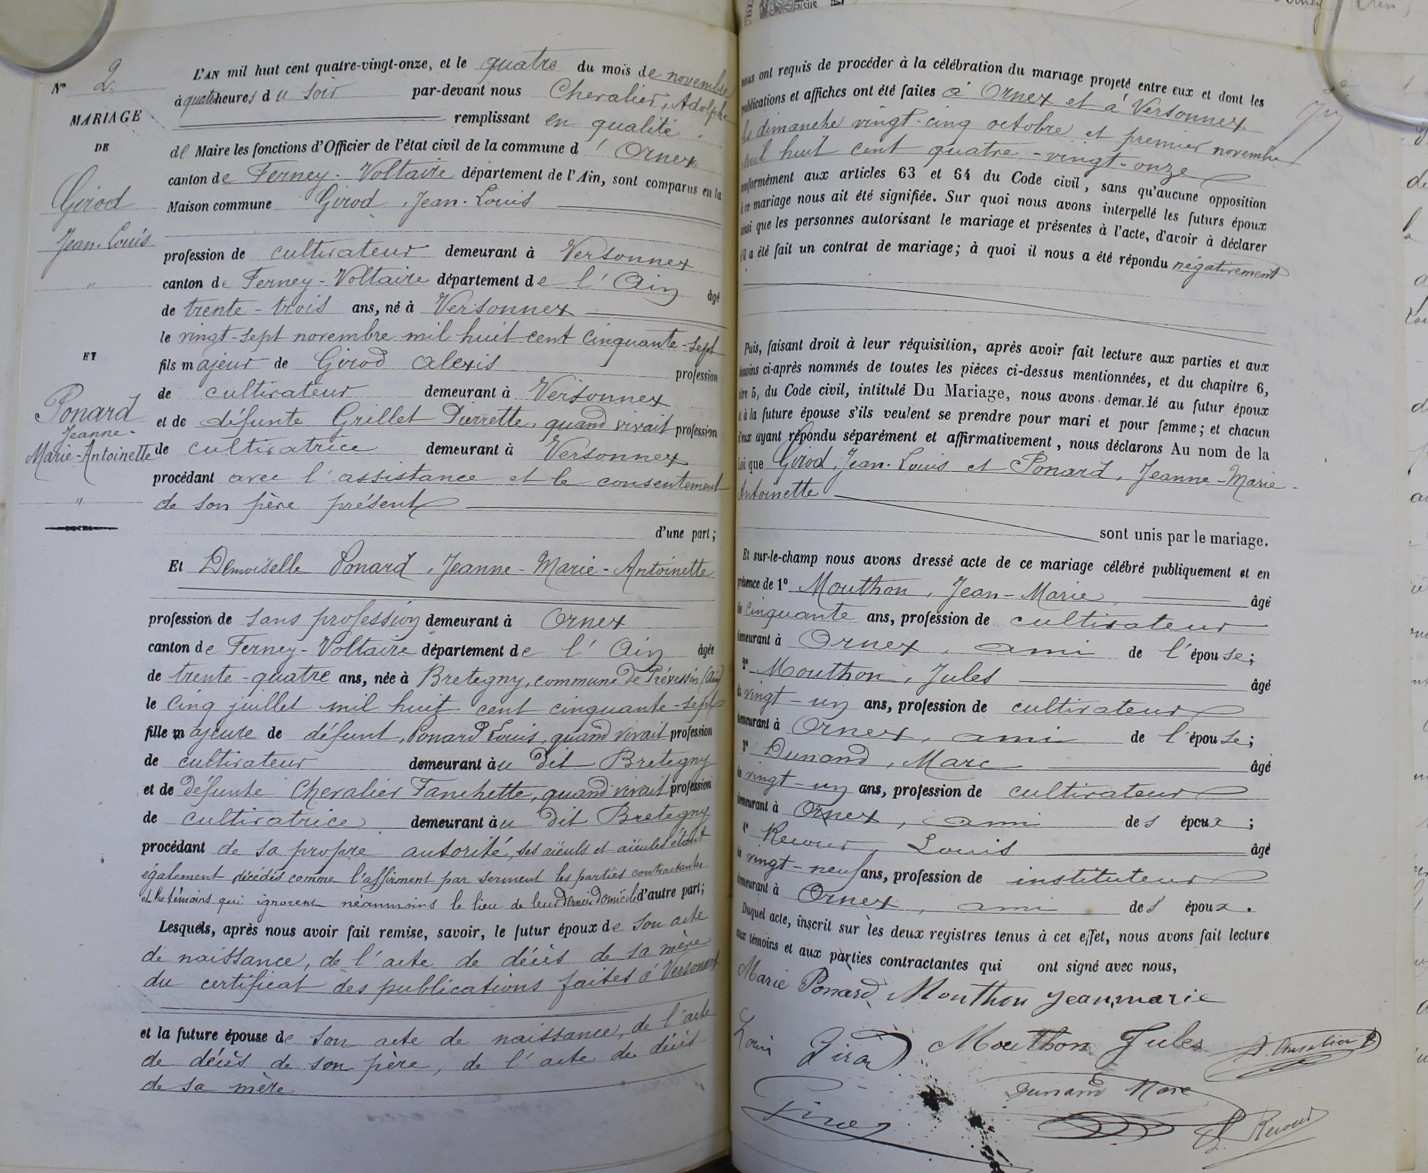 N° 2
MARIAGE
DE
Girod
Jean-Louis
"
ET
Ponard
Jeanne-
Marie-Antoinette
"
L'AN mil huit cent quatre-vingt-onze, et le quatre du mois de novembre
à quatre heures du soir par-devant nous Chevalier, Adolphe
remplissant en qualité
de Maire les fonctions d'Officier de l'état civil de la commune d'Ornex
canton de Ferney-Voltaire département de l'Ain, sont comparus en la
Maison commune Girod, Jean-Louis
profession de cultivateur demeurant à Versonnex
canton de Ferney-Voltaire département de l'Ain âgé
de trente-trois ans, né à Versonnex
le vingt-sept novembre mil huit cent cinquante-sept
fils majeur de Girod Alexis profession
de cultivateur demeurant à Versonnex
et de défunte Grillet Pierrette, quand vivait profession
de cultivatrice demeurant à Versonnex
procédant avec l'assistance et le consentement
de son père présent
d'une part;
Et Demoiselle Ponard, Jeanne-Marie-Antoinette
profession de sans profession demeurant à Ornex
canton de Ferney-Voltaire département de l'Ain âgée
de trente-quatre ans, née à Bretegny, commune de Prévessin (Ain)
le cinq juillet mil huit cent cinquante-sept
fille majeure de défunt Ponard Louis, quand vivait profession
de cultivateur demeurant au dit Bretegny
et de défunte Chevalier Fanchette, quand vivait profession
de cultivatrice demeurant au dit Bretegny
procédant de sa propre autorité, ses aïeuls et aïeules étant
également décédés comme l'affirment par serment les parties contractantes
et les témoins qui ignorent néanmoins le lieu de leur dernier domicile d'autre part;
Lesquels, après nous avoir fait remise, savoir, le futur époux de son acte
de naissance, de l'acte de décès de sa mère
du certificat des publications faites à Versonnex
et la future épouse de son acte de naissance, de l'acte
de décès de son père, de l'acte de décès
de sa mère
nous ont requis de procéder à la célébration du mariage projeté entre eux et dont les
publications et affiches ont été faites à Ornex et à Versonnex
le dimanche vingt-cinq octobre et premier novembre
mil huit cent quatre-vingt-onze
conformément aux articles 63 et 64 du Code civil, sans qu'aucune opposition
à ce mariage nous ait été signifiée. Sur quoi nous avons interpellé les futurs époux
ainsi que les personnes autorisant le mariage et présentes à l'acte, d'avoir à déclarer
s'il a été fait un contrat de mariage; à quoi il nous a été répondu négativement
Puis, faisant droit à leur réquisition, après avoir fait lecture aux parties et aux
témoins ci-après nommés de toutes les pièces ci-dessus mentionnées, et du chapitre 6,
titre 5, du Code civil, intitulé Du Mariage, nous avons demandé au futur époux
et à la future épouse s'ils veulent se prendre pour mari et pour femme; et chacun
d'eux ayant répondu séparément et affirmativement, nous déclarons Au nom de la
Loi que Girod, Jean-Louis et Ponard, Jeanne-Marie-
Antoinette
sont unis par le mariage.
Et sur-le-champ nous avons dressé acte de ce mariage célébré publiquement et en
présence de 1° Mouthon, Jean-Marie âgé
de cinquante ans, profession de cultivateur
demeurant à Ornex, ami de l'épouse;
2° Mouthon, Jules âgé
de vingt-un ans, profession de cultivateur
demeurant à Ornex, ami de l'épouse;
3° Dunand, Marc âgé
de vingt-un ans, profession de cultivateur
demeurant à Ornex, ami des époux;
4° Louis âgé
de vingt-neuf ans, profession de instituteur
demeurant à Ornex, ami des époux.
Duquel acte, inscrit sur les deux registres tenus à cet effet, nous avons fait lecture
aux témoins et aux parties contractantes qui ont signé avec nous,
Marie Ponard Mouthon Jeanmarie
Louis Girod Mouthon Jules
Dunand Marc